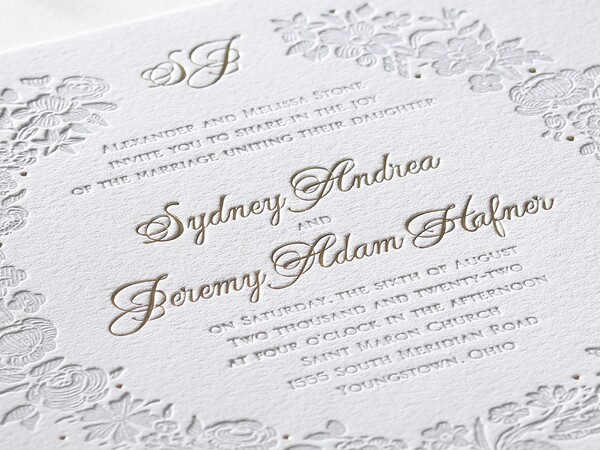 SJ
Alexander and Melissa Stone
invite you to share in the joy
of the marriage uniting their daughter
Sydney Andrea
and
Jeremy Adam Hafner
on Saturday, the sixth of August
Two thousand and twenty-two
at four o'clock in the afternoon
Saint Maron Church
1555 South Meridian Road
Youngstown, Ohio